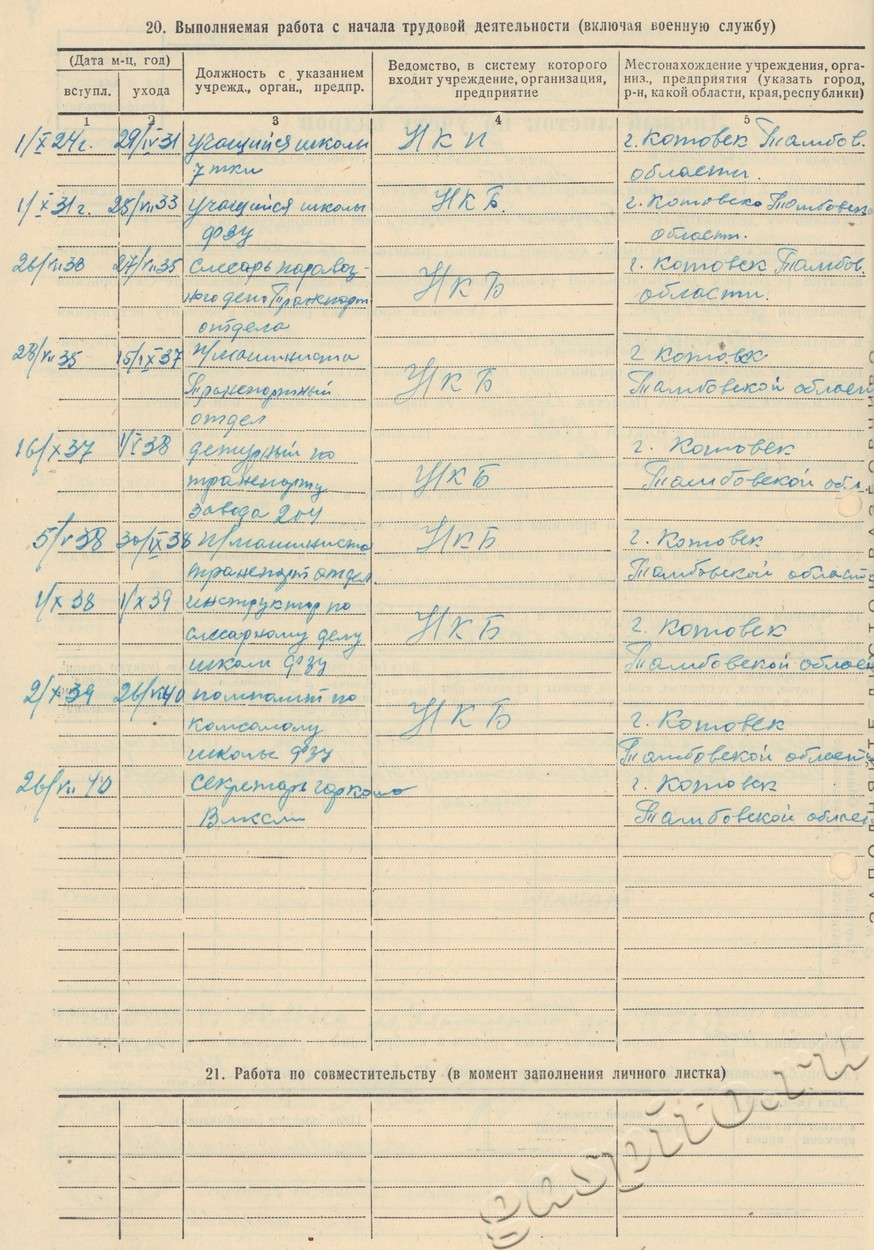 20. Выполняемая работа с начала трудовой деятельности (включая военную службу)
(Дата м-ц, год)
вступл.
ухода
Должность с указанием
учрежд., орган., предпр.
Ведомство, в систему которого
входит учреждение, организация,
предприятие
Местонахождение учреждения, орга-
низ., предприятия (указать город,
р-н, какой области, края, республики)
1 2 3 4 5
1/X 24 г. 29/IV 31 учащийся школы НКП г. Котовск Тамбов.
7 ткм области.
1/X 31 г. 25/VII 33 учащийся школы НКБ. г. Котовска Тамбовск
ФЗУ области.
26/VII 33 27/VII 35 слесарь паравоз- НКБ г. Котовск Тамбов.
ного депо Транспорт области.
отдела
28/VII 35 15/IX 37 п/машиниста г Котовск
Транспортный НКБ Тамбовской област
отдел
16/X 37 1/V 38 дежурный по г. Котовск
транспорту НКБ Тамбовской обл.
завода 204
5/V 38 30/IX 38 п/машиниста НКБ г. Котовск
транспорт отдел Тамбовской област
1/X 38 1/X 39 инструктор по
слесарному делу НКБ г. Котовск
школы ФЗУ Тамбовской област
2/X 39 26/VII 40 помполит по
комсомолу НКБ г. Котовск
школы ФЗУ Тамбовской област
26/VII 40 Секретарь горкома г. Котовск
Влксм Тамбовской област
21. Работа по совместительству (в момент заполнения личного листка)
gaspito.ru